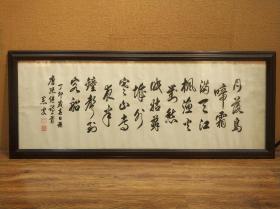 月落烏
啼霜
滿天江
楓漁火
對愁
眠姑蘇
城外
寒山寺
夜半
鐘聲到
客船
丁卯歲春日錄
唐張繼詩一首